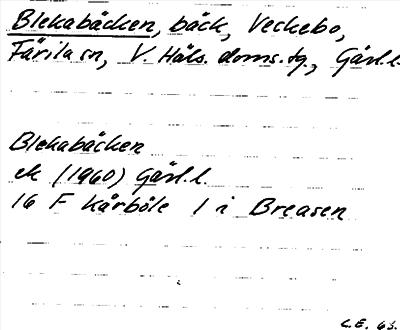 Blekabäcken, bäck, Veckebo,
Färila sn, V. Häls. doms. tg., Gävl. l.
Blekabäcken
ek (1960) Gävl. l.
16 F Kårböle 1 i Breasen
C.E. 63.